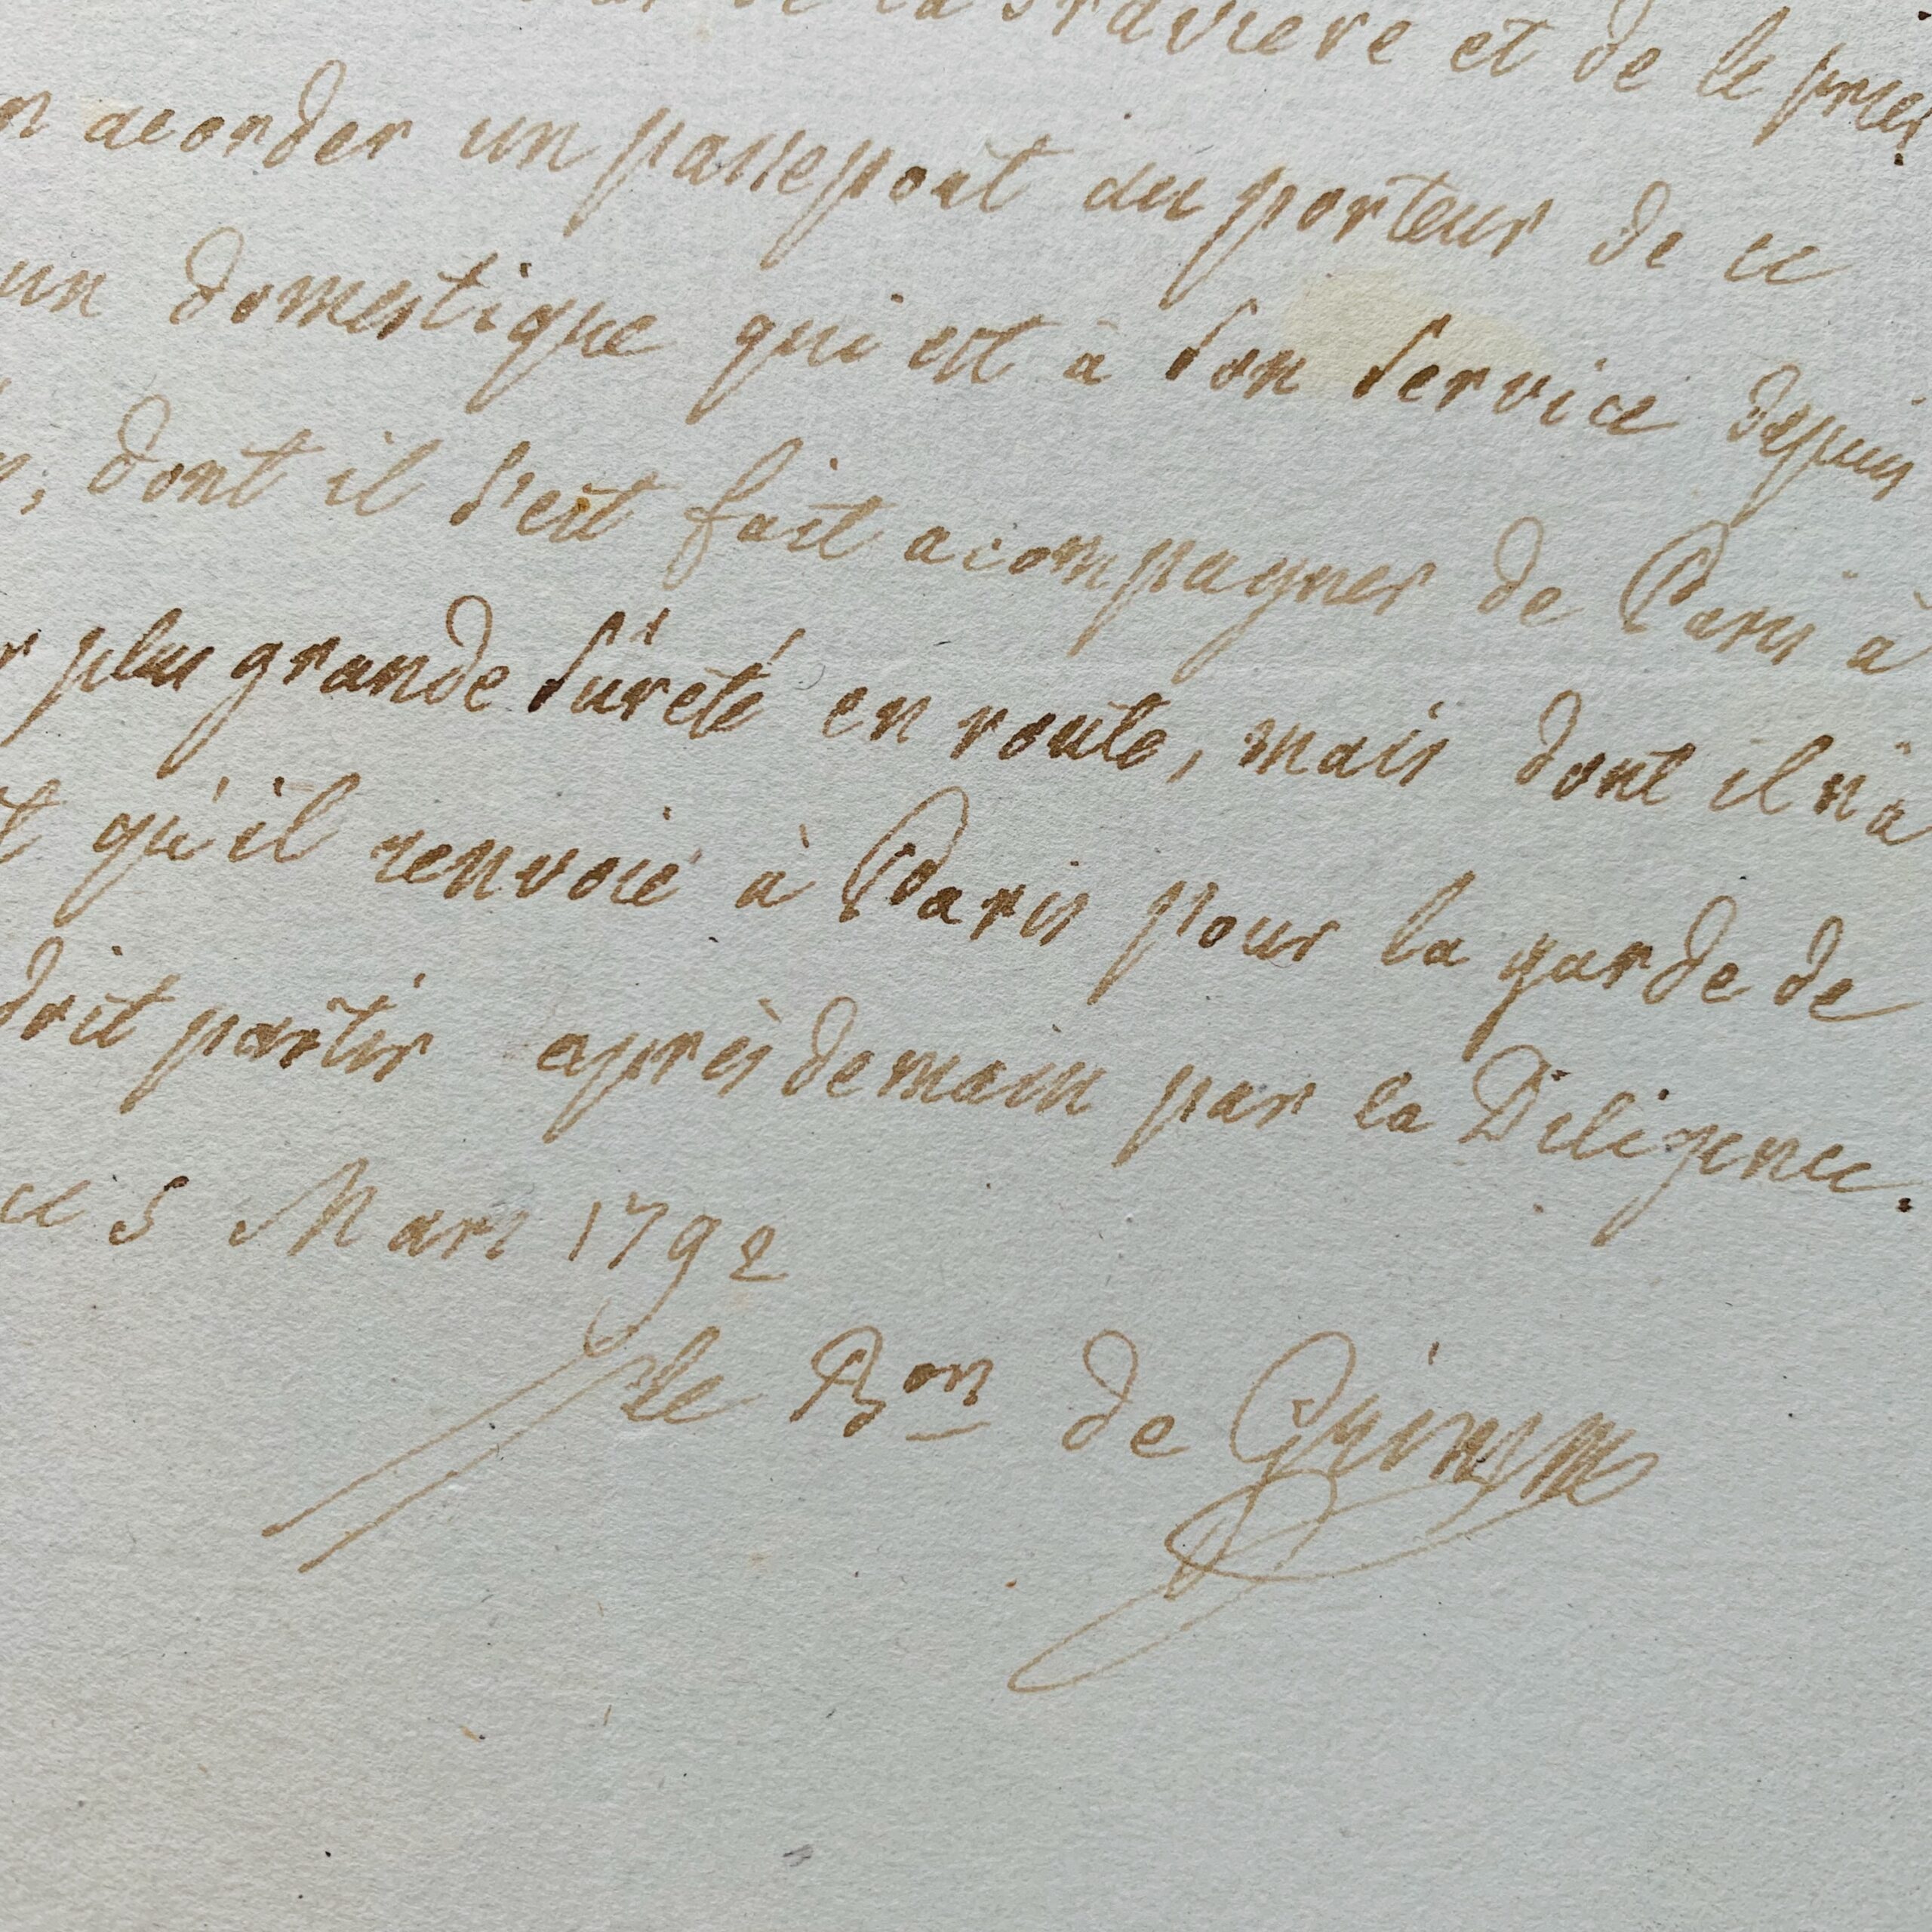 de la Graviere et de le prier
acorder un passeport au porteur de ce
un domestique qui est à son service depuis
dont il s'est fait acompagner de Paris à
plus grande sûreté en route, mais dont il n'a
qu'il renvoie à Paris pour la garde de
doit partir après demain par la Diligence.
ce 5 Mars 1792
le Bon de Grimm